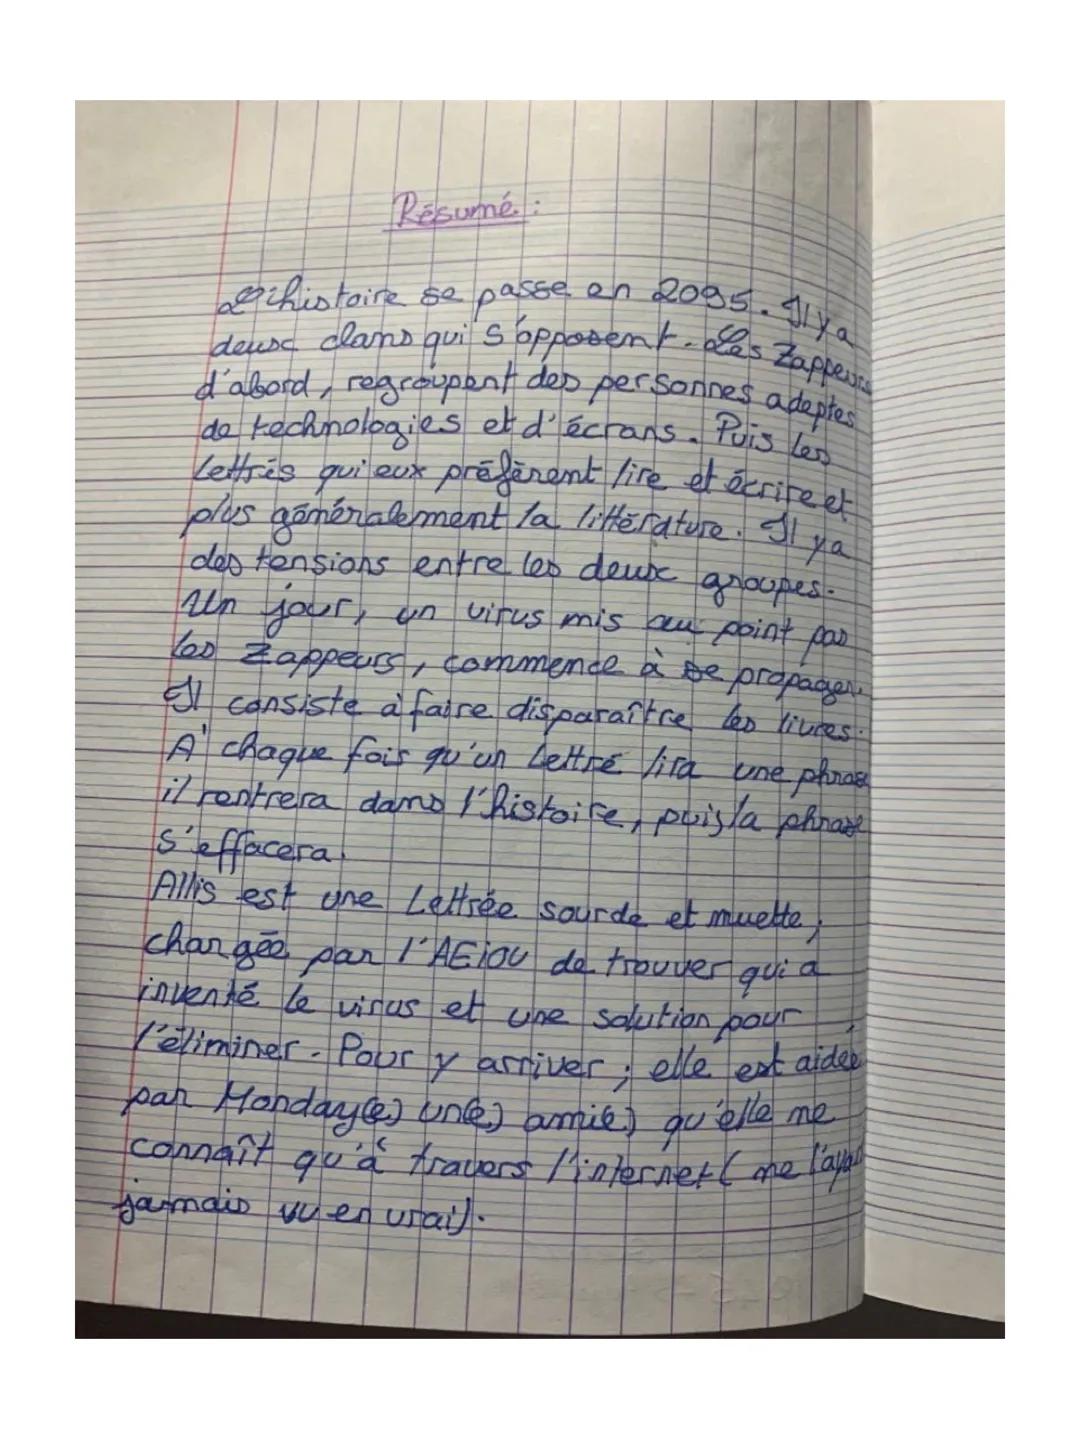 Résumé :
L'histoire se passe en 2095. Il y a
deux clans qui s'opposent. Les Zappeurs
d'abord, regroupent des personnes adeptes
de technologies et d'écrans. Puis les
Lettrés qui eux préfèrent lire et écrire et
plus généralement la littérature. Il y a
des tensions entre les deux groupes.
Un jour, un virus mis au point par
les Zappeurs, commence à se propager.
Il consiste à faire disparaître les livres.
A chaque fois qu'un Lettré lira une phrase
il rentrera dans l'histoire, puis la phrase
s'effacera.
Allis est une Lettrée sourde et muette,
chargée par l'AEiOU de trouver qui a
inventé le virus et une solution pour
l'éliminer. Pour y arriver, elle est aidée
par Monday(e) un(e) ami(e) qu'elle ne
connaît qu'à travers l'internet (ne l'ayant
jamais vu en vrai).